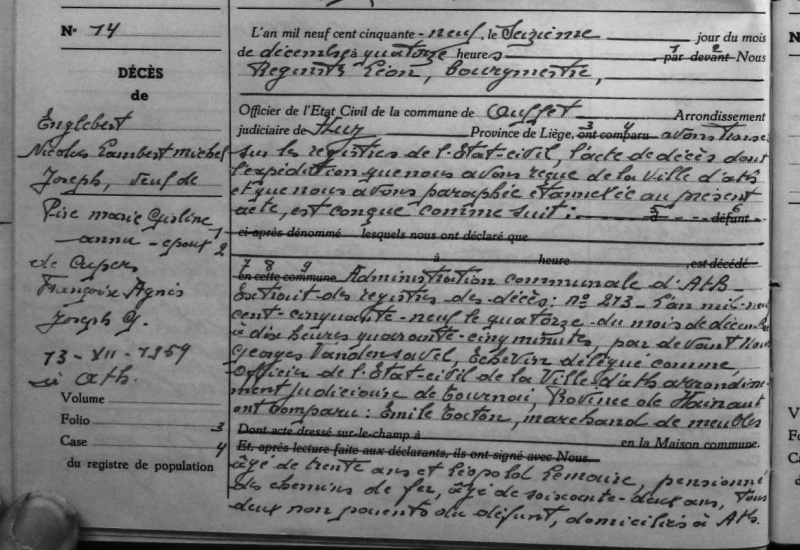 N° 14
DÉCÈS
de
Englebert
Nicolas Lambert Michel
Joseph, veuf de
Pire Marie Girline
annu - epoux 2
de Cupers
Françoise Agnès
Joseph G.
13 - XII - 1959
à Ath.
Volume
Folio 3
Case 4
du registre de population
L'an mil neuf cent cinquante - neuf, le Seizième jour du mois
de décembre à quatorze heures 1 par 2 devant Nous
Léon, bourgmestre,
Officier de l'Etat Civil de la commune de Ouffet Arrondissement
judiciaire de Huy Province de Liège, 3 ont 4 comparu avons transc
sur les registres de l'Etat-civil, l'acte de décès dont
l'expédition que nous avons reçue de la Ville d'Ath
et que nous avons paraphée et annexée au présent
acte, est conçue comme suit : 5 à 6 défunt
ci-après dénommé lesquels nous ont déclaré que
à heure est décédé
7 8 9 en cette commune Administration communale d'Ath -
Extrait des registres des décès : n° 273 - L'an mil-neuf
cent-cinquante-neuf le quatorze du mois de décembre
à dix heures quarante-cinq minutes, par devant Nous
Georges Vandensavel, Echevin délégué comme
Officier de l'Etat-civil de la Ville d'Ath arrondisse-
ment judiciaire de Tournai, Province de Hainaut
ont comparu : Emile Tocton, marchand de meubles
Dont acte dressé sur-le-champ à en la Maison commune.
Et, après lecture faite aux déclarants, ils ont signé avec Nous.
âgé de trente ans et Léopold Lemaire, pensionné
des chemins de fer, âgé de soixante-deux ans, tous
deux non parents du défunt, domiciliés à Ath.
N
V
Fo
Ca